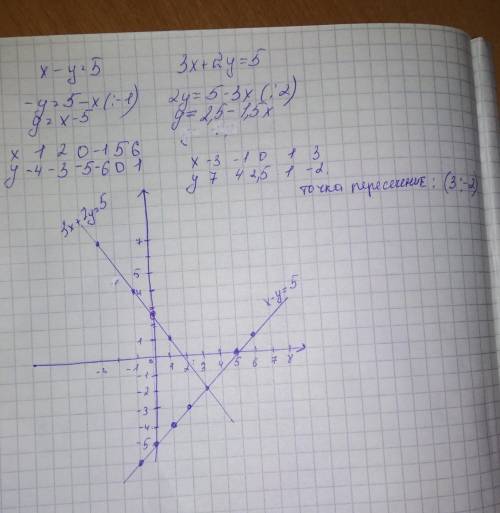 x - y = 5
3x + 2y = 5
-y = 5 - x (: -1)
2y = 5 - 3x (: 2)
y = x - 5
y = 2,5 - 1,5x
x 1 2 0 -1 5 6
y -4 -3 -5 -6 0 1
x -3 -1 0 1 3
y 7 4 2,5 1 -2
точка пересечение: (3; -2)
3x + 2y = 5
x - y = 5
7
5
4
1
-1
0
1 2 3 4 5 6 7 8
-1
-2
-3
-4
-5